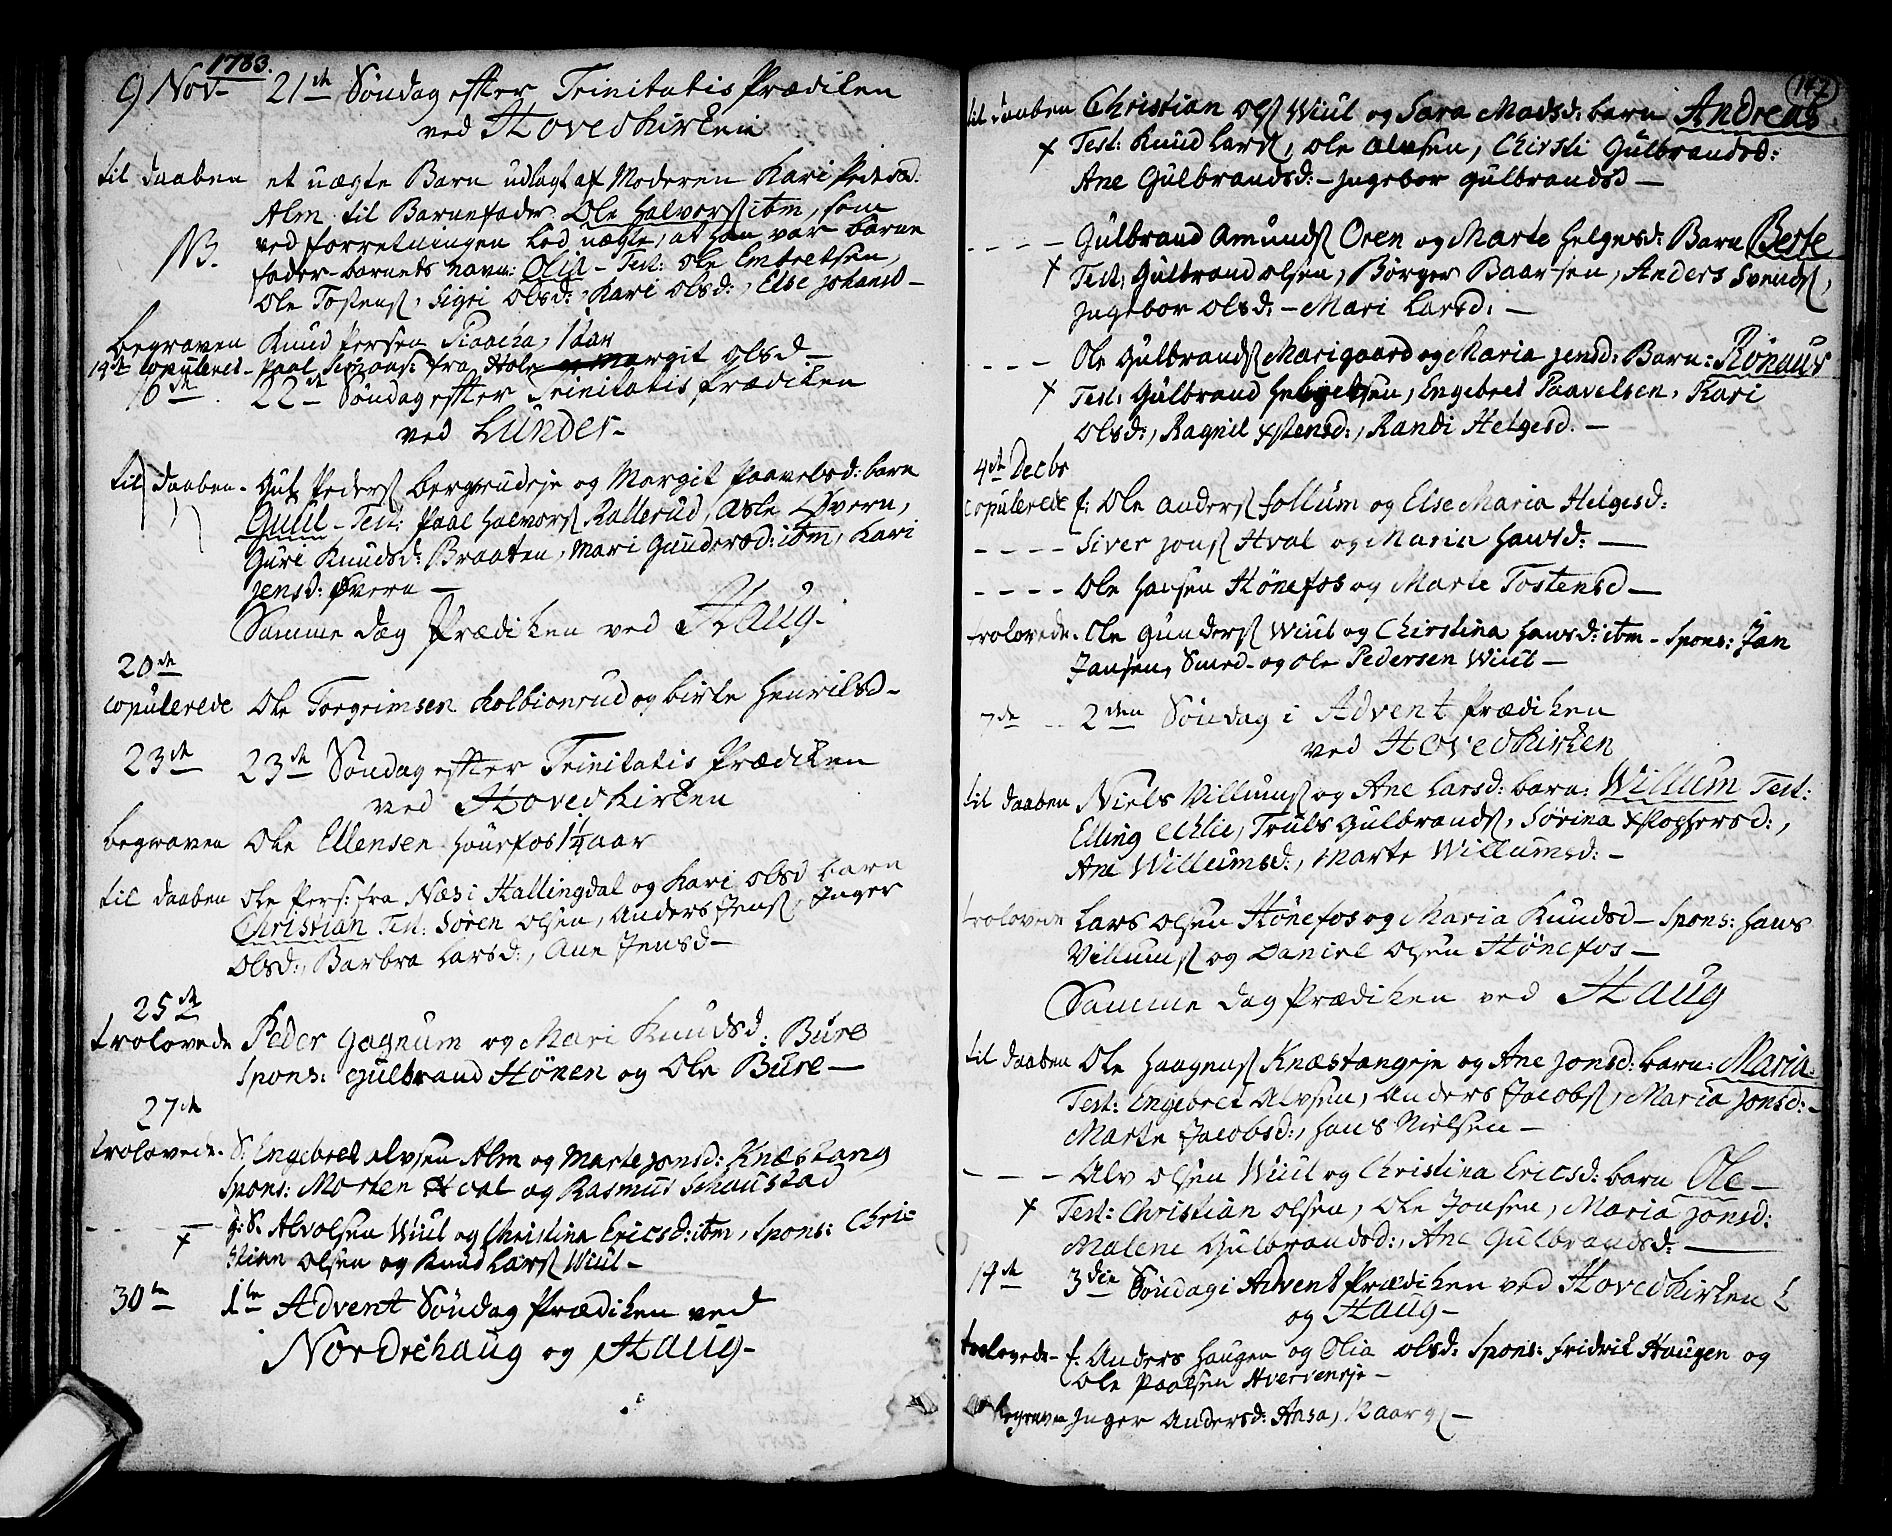 1783.
9 Nov. 21de Søndag efter Trinitatis Prædiken
ved Hovedkirken
til daaben et uægte Barn udlagt af Moderen Kari Pedersd.
Alm til Barnefader Ole Halvors. ibm, som
NB. ved forretningen lod nægte, at han var barne
fader - barnets navn: Olia - Test: Ole Embretsen,
Ole Tostens., Sigri Olsd:, Kari Olsd:, Else Johansd -
begraven Knud Persen 1 aar
14de copulered - Paal Simons: fra Hole og Margit Olsd -
16de 22de Søndag efter Trinitatis Prædiken
ved Lunder -
til daaben - Gul. Peders. Bergsrudeje og Margit Paavelsd: barn
Gulil - Test: Paal Halvors. Kallerud, Asle Øvern,
Guri Knudsd: Braaten, Mari Gundersd: ibm, Kari
Jensd: Øvern -
Samme dag Prædiken ved Haug.
20de
copulerede Ole Torgrimsen Kolbionrud og birte Henriksd -
23de 23de Søndag efter Trinitatis Prædiken
ved Hovedkirken
begraven Ole Ellensen Hønefos 1¼ aar
til daaben Ole Pers: fra Næs i Hallingdal og Kari Olsd barn
Christian Test: Søren Olsen, Anders Jens., Inger
Olsd:, Barbra Larsd:, Ane Jensd -
25de
trolovede Peder Gagnum og Mari Knudsd: Bure
Spons: Gulbrand Hønen og Ole Bure -
27de
trolovede - S: Engebret Alvsen Alm og Marte Jonsd: Knæstang
Spons: Morten Hval og Rasmus Schaustad
- - - + g: S. Alv Olsen Wiul og Christina Ericsd: ibm, Spons: Chri
stian Olsen og Knud Lars. Wiul -
30te 1te Advent Søndag Prædiken ved
Nordrehaug og Haug -
147
til daaben Christian Ols. Wiul og Sara Madsd: barn Andreas.
+ Test: Knud Lars., Ole Alvsen, Chirsti Gulbrandsd:
Ane Gulbrandsd: - Ingebor Gulbrandsd -
- - - - Gulbrand Amunds. Oren og Marte Helgesd: Barn Berte
+ Test: Gulbrand Olsen, Børger Baarsen, Anders Svends.,
Ingebor Olsd: - Mari Larsd: -
- - - Ole Gulbrands. Marigaard og Maria Jensd: Barn: Rønaug
+ Test: Gulbrand Helgesen, Engebret Paavelsen, Kari
Olsd:, Ragnil Xstensd:, Randi Helgesd. -
4de Decbr
copulerede f: Ole Anders. Follum og Else Maria Helgesd:
- - - - Siver Jons. Hval og Maria Hansd: -
- - - - Ole Hansen Hønefos og Marte Tostensd -
trolovede - Ole Gunders. Wiul og Chirstina Hansd: ibm - Spons: Jan
Jansen, Smed - og Ole Pedersen Wiul -
7de - - 2den Søndag i Advent Prædiken
ved Hovedkirken
til daaben Niels Villums. og Ane Larsd: barn: Willum Test:
Elling Echlie, Truls Gulbrands., Sørina Xstophersd:,
Ane Willumsd:, Marte Willumsd: -
trolovede Lars Olsen Hønefos og Maria Knudsd - Spons: Hans
Villums. og Daniel Olsen Hønefos -
Samme dag Prædiken ved Haug
til daaben Ole Haagens. Knæstangeje og Ane Jonsd: barn: Maria.
Test: Engebret Alvsen, Anders Jacobs., Maria Jonsd: -
Marte Jacobsd:, Hans Nielsen -
- - - Alv Olsen Wiul og Christina Ericsd: barn Ole -
+ Test: Christian Olsen, Ole Jonsen, Maria Jonsd:
Malene Gulbrandsd:, Ane Gulbrandsd: -
14de 3die Søndag i Advent Prædiken ved Hovedkirken
og Haug -
trolovede - f: Anders Haugen og Olia Olsd: Spons: Fridrik Haugen og
Ole Paalsen Hverveneje -
Begraven Inger Andersd: Aasa, 12 aar g. -